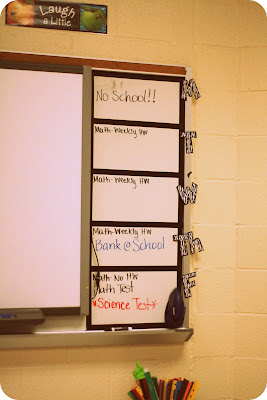 Laugh
a Little
No School!!
M
Math-Weekly HW
T
Math-Weekly HW
W
Math-Weekly HW
Bank @ School
TH
Math No HW
Math Test
*Science Test*
F